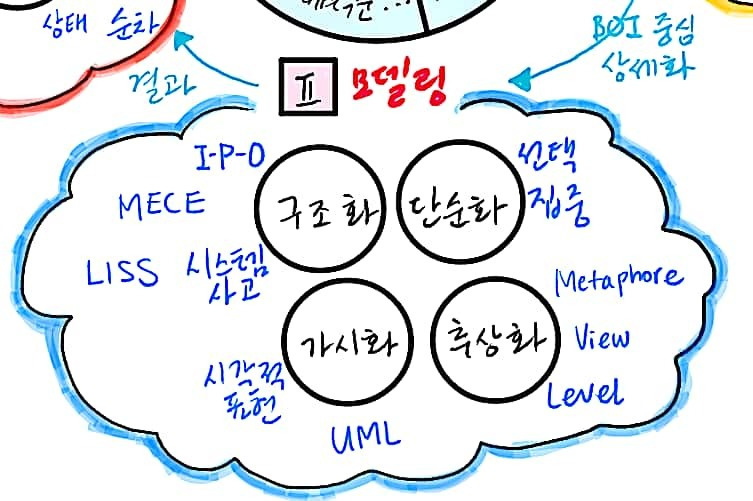 상태 순차
BOI 중심
상세화
결과
II 모델링
I-P-O
구조화
단순화
선택
집중
MECE
LISS
시스템
사고
Metaphore
가시화
추상화
View
시각적
표현
Level
UML